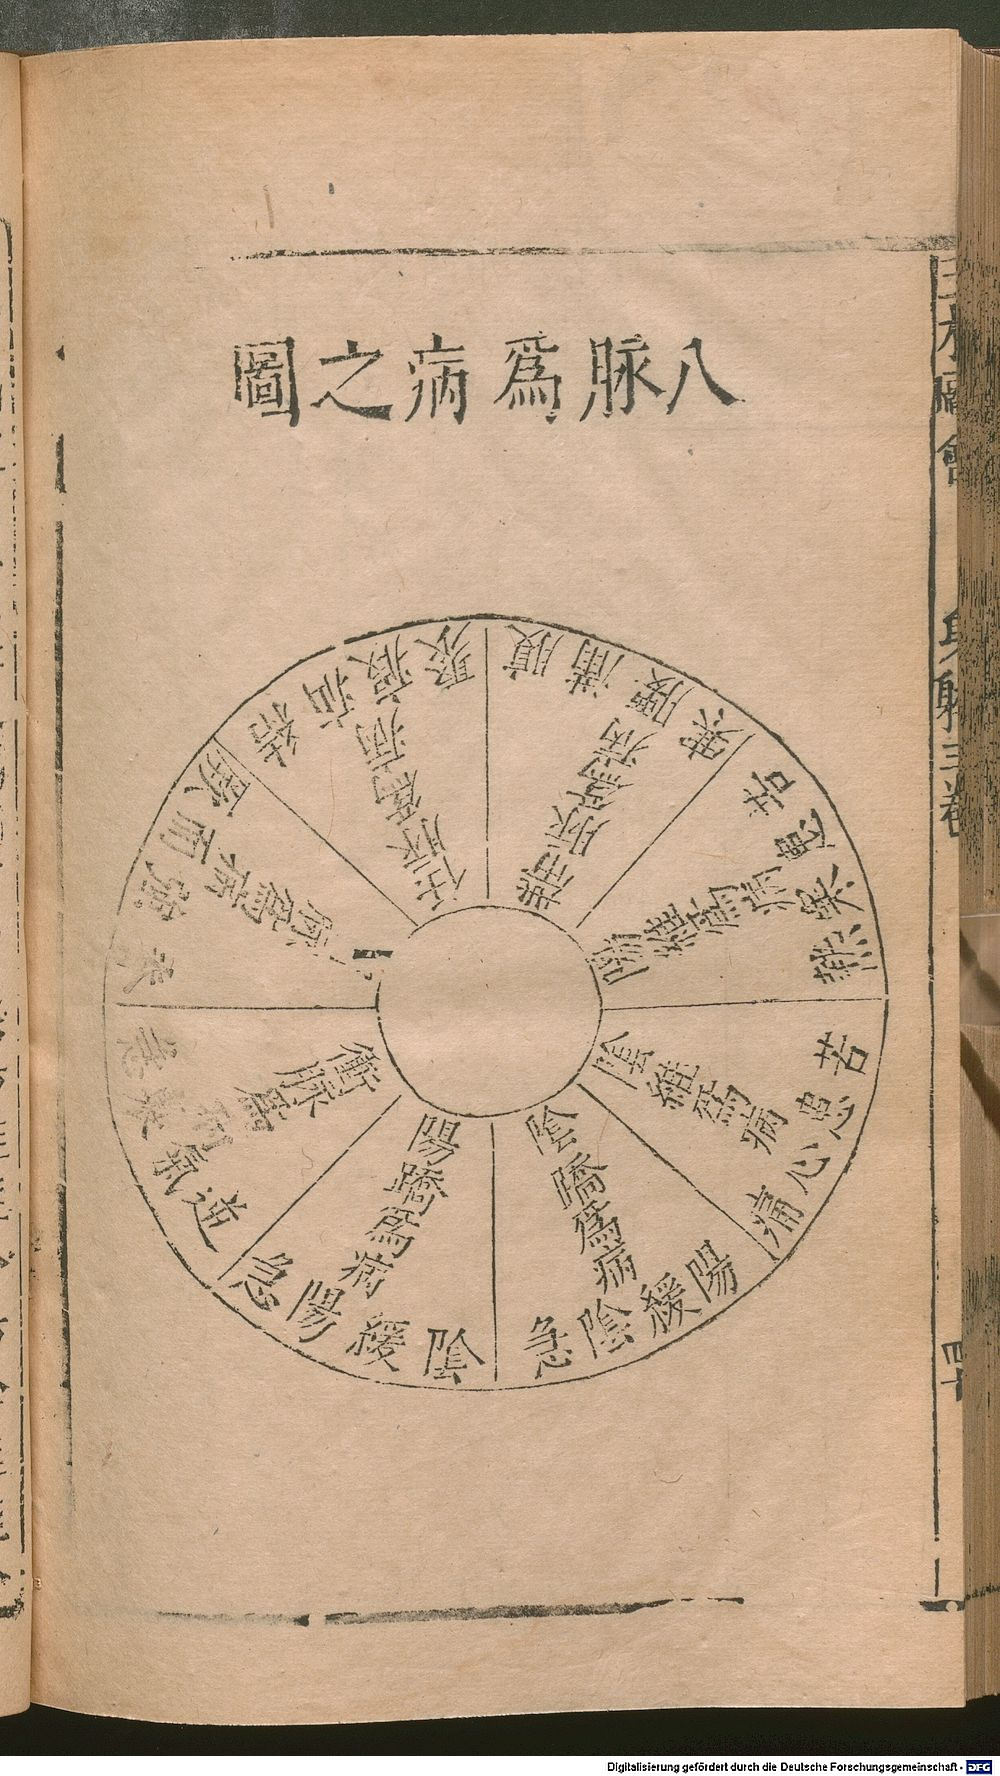 八脉爲病之圖
陽維爲病
苦寒熱
陰維爲病
苦患心痛
陰蹻爲病
陽緩陰急
陽蹻爲病
陰緩陽急
衝脉爲病
逆氣裏急
爲病
裏
任脉爲病
結
瘕聚
帶脉爲病
腹滿腰
三才圖會
身體三卷
Digitalisierung gefördert durch die Deutsche Forschungsgemeinschaft - DFG